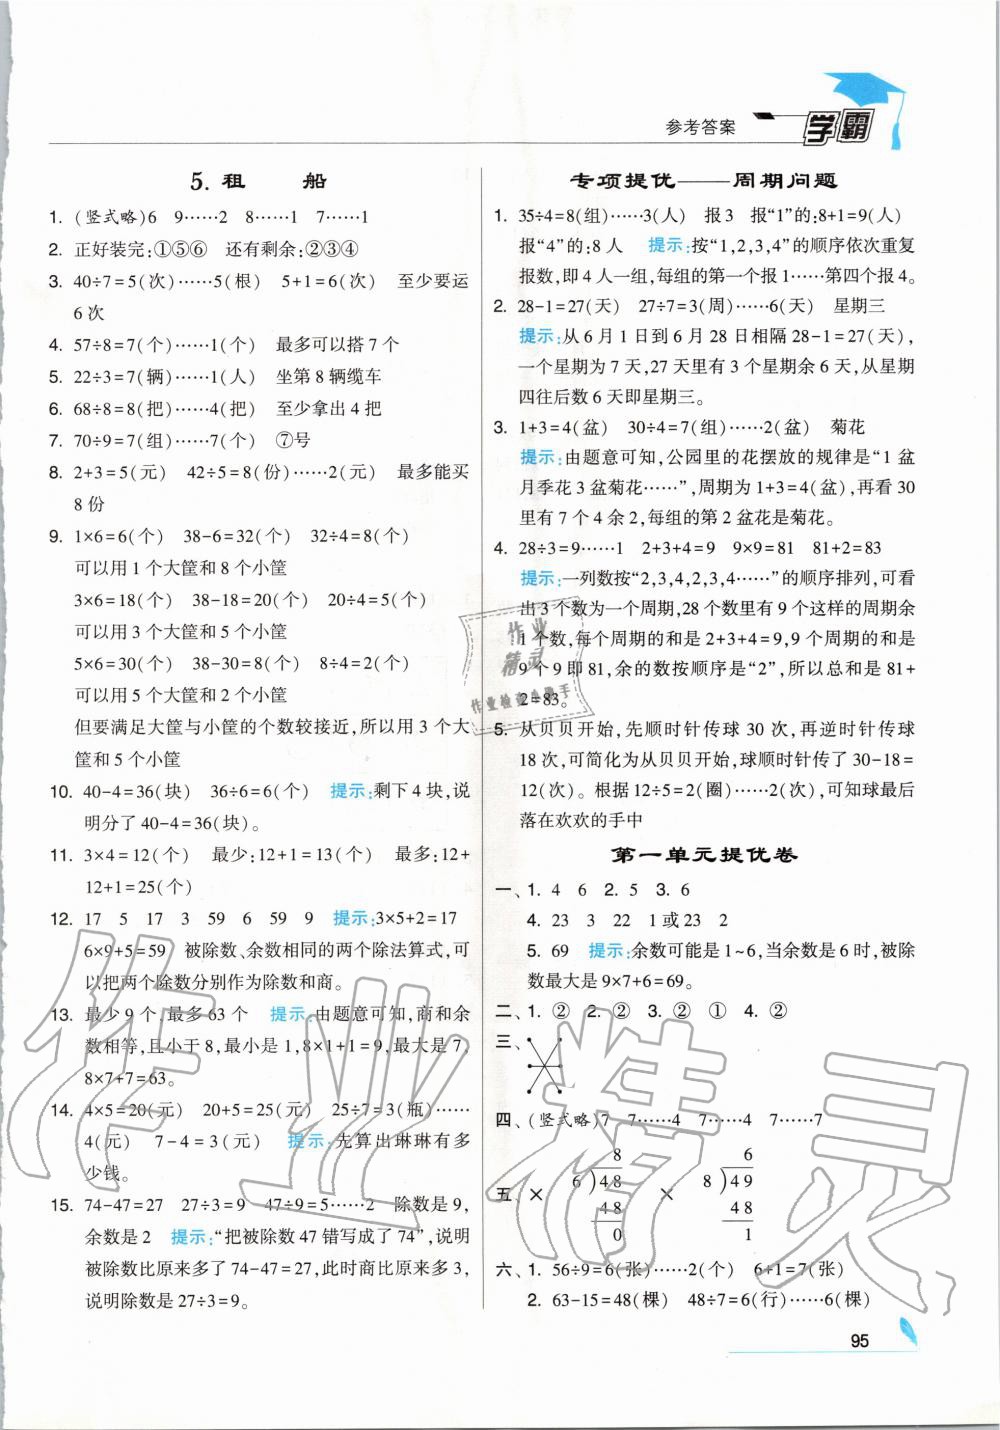 参考答案 学霸
5. 租 船
1. (竖式略)6 9……2 8……1 7……1
2. 正好装完:①⑤⑥ 还有剩余:②③④
3. 40÷7=5(次)……5(根) 5+1=6(次) 至少要运
6次
4. 57÷8=7(个)……1(个) 最多可以搭7个
5. 22÷3=7(辆)……1(人) 坐第8辆缆车
6. 68÷8=8(把)……4(把) 至少拿出4把
7. 70÷9=7(组)……7(个) ⑦号
8. 2+3=5(元) 42÷5=8(份)……2(元) 最多能买
8份
9. 1×6=6(个) 38-6=32(个) 32÷4=8(个)
可以用1个大筐和8个小筐
3×6=18(个) 38-18=20(个) 20÷4=5(个)
可以用3个大筐和5个小筐
5×6=30(个) 38-30=8(个) 8÷4=2(个)
可以用5个大筐和2个小筐
但要满足大筐与小筐的个数较接近,所以用3个大
筐和5个小筐
10. 40-4=36(块) 36÷6=6(个) 提示:剩下4块,说
明分了40-4=36(块)。
11. 3×4=12(个) 最少:12+1=13(个) 最多:12+
12+1=25(个)
12. 17 5 17 3 59 6 59 9 提示:3×5+2=17
6×9+5=59 被除数、余数相同的两个除法算式,可
以把两个除数分别作为除数和商。
13. 最少9个,最多63个 提示:由题意可知,商和余
数相等,且小于8,最小是1,8×1+1=9,最大是7,
8×7+7=63。
14. 4×5=20(元) 20+5=25(元) 25÷7=3(瓶)……
4(元) 7-4=3(元) 提示:先算出琳琳有多
少钱。
15. 74-47=27 27÷3=9 47÷9=5……2 除数是9,
余数是2 提示:“把被除数47错写成了74”,说明
被除数比原来多了74-47=27,此时商比原来多3,
说明除数是27÷3=9。
专项提优——周期问题
1. 35÷4=8(组)……3(人) 报3 报“1”的:8+1=9(人)
报“4”的:8人 提示:按“1,2,3,4”的顺序依次重复
报数,即4人一组,每组的第一个报1……第四个报4。
2. 28-1=27(天) 27÷7=3(周)……6(天) 星期三
提示:从6月1日到6月28日相隔28-1=27(天),
一个星期为7天,27天里有3个星期余6天,从星期
四往后数6天即星期三。
3. 1+3=4(盆) 30÷4=7(组)……2(盆) 菊花
提示:由题意可知,公园里的花摆放的规律是“1盆
月季花3盆菊花……”,周期为1+3=4(盆),再看30
里有7个4余2,每组的第2盆花是菊花。
4. 28÷3=9……1 2+3+4=9 9×9=81 81+2=83
提示:一列数按“2,3,4,2,3,4……”的顺序排列,可看
出3个数为一个周期,28个数里有9个这样的周期余
1个数,每个周期的和是2+3+4=9,9个周期的和是
9个9即81,余的数按顺序是“2”,所以总和是81+
2=83。
5. 从贝贝开始,先顺时针传球30次,再逆时针传球
18次,可简化为从贝贝开始,球顺时针传了30-18=
12(次)。根据12÷5=2(圈)……2(次),可知球最后
落在欢欢的手中
第一单元提优卷
一、1. 4 6 2. 5 3. 6
4. 23 3 22 1或23 2
5. 69 提示:余数可能是1~6,当余数是6时,被除
数最大是9×7+6=69。
二、1. ② 2. ② 3. ② ① 4. ②
三、
四、(竖式略)7 7……4 7……4 7……7
8 6
五、× 6)48 × 8)49
48 48
0 1
六、1. 56÷9=6(张)……2(个) 6+1=7(张)
2. 63-15=48(棵) 48÷7=6(行)……6(棵)
95
作业
精灵
作业检查小助手
作业精灵